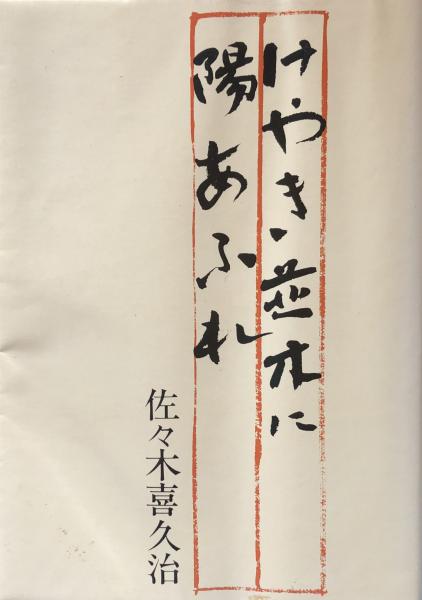 けやき並木に
陽あふれ
佐々木喜久治